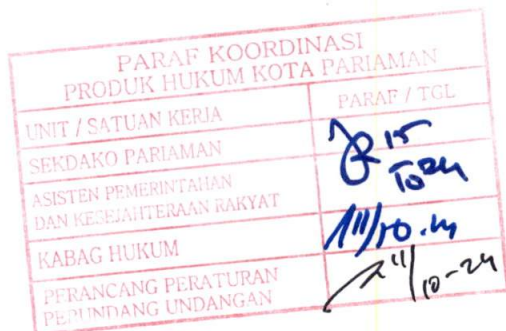 PARAF KOORDINASI
PRODUK HUKUM KOTA PARIAMAN
UNIT / SATUAN KERJA
PARAF / TGL
SEKDAKO PARIAMAN
ASISTEN PEMERINTAHAN
DAN KESEJAHTERAAN RAKYAT
15
KABAG HUKUM
11/10-24
PERANCANG PERATURAN
PERUNDANG UNDANGAN
11/10-24